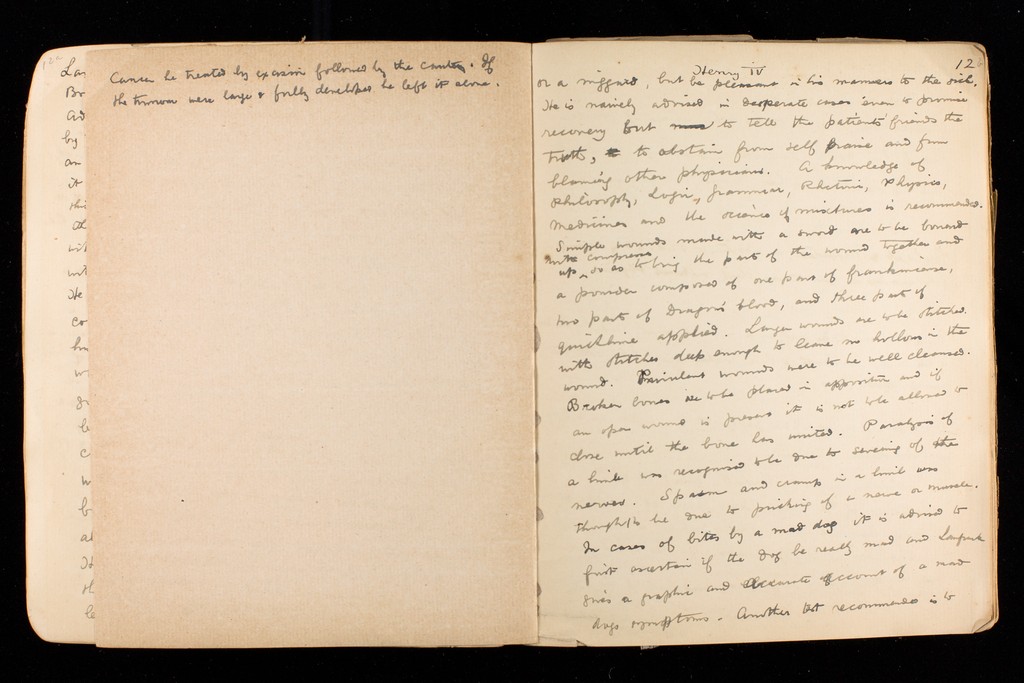 Cancer he treated by excision followed by the cautery. If
the tumour were large & fully developed he left it alone.
12
Henry IV
or a niggard, but be pleasant in his manners to the sick.
He is naively advised in desperate cases even to promise
recovery but to tell the patients friends the
truth, to abstain from self praise and from
blaming other physicians. A knowledge of
Philosophy, Logic, grammar, Rhetoric, Physics,
medicines and the science of mixtures is recommended.
Simple wounds made with a sword are to be bound
with compresses
up, so as to bring the parts of the wound together and
a powder composed of one part of frankincense,
two parts of Dragon's blood, and three parts of
quicklime applied. Larger wounds are to be stitched
with stitches deep enough to leave no hollows in the
wound. Purulent wounds were to be well cleansed.
Broken bones are to be placed in apposition and if
an open wound is present it is not to be allowed to
close until the bone has united. Paralysis of
a limb was recognised to be due to severing of the
nerves. Spasm and cramp in a limb was
thought to be due to pricking of a nerve or muscle.
In cases of bites by a mad dog it is advised to
first ascertain if the dog be really mad and Lanfrank
gives a graphic and accurate account of a mad
dogs symptoms. Another test recommended is to
La
Br
ad
by
an
it
thi
He
co
w
b